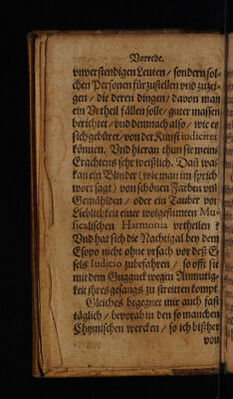 Vorrede.
vnverstendigen Leuten / sondern sol-
chen Personen fürzustellen vnd zuzei-
gen / die deren dingen / davon man
ein Vrtheil fällen solle / guter massen
berichtet / vnd demnach also / wie es
sich gebüret / von der Kunst iudiciren
können. Vnd hieran thun sie meins
Erachtens sehr weißlich. Dañ was
kan ein Blinder (wie man im sprich
wort sagt) von schönen Farben vnd
Gemählden / oder ein Tauber von
Lieblichkeit einer wolgestimten Mu-
sicalischen Harmonia vrtheilen?
Vnd hat sich die Nachtigal bey dem
Esopo nicht ohne vrsach vor deß E-
sels Iudicio zubefahren / so offt sie
mit dem Gugguck wegen Anmutig-
keit jhres gesangs zu streitten kompt.
Gleiches begegnet mir auch fast
täglich / bevorab in den so manchen
Chymischen wercken / so ich bißher
von